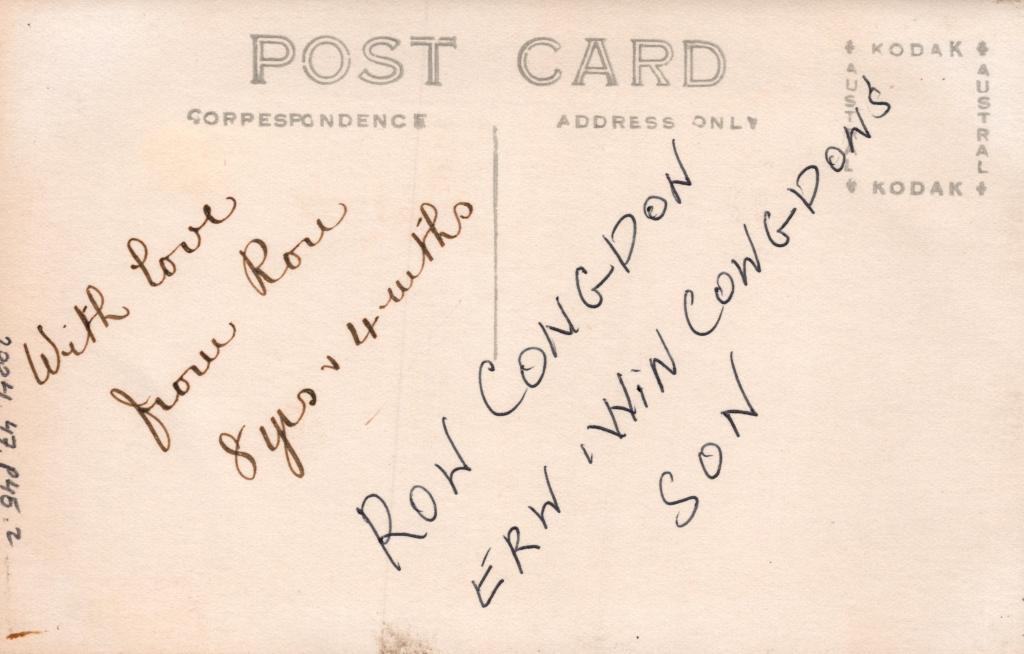 POST CARD
CORRESPONDENCE
ADDRESS ONLY
KODAK
AUSTRAL
AUSTRAL
KODAK
With love
from Ron
8 yrs & 4 mths
RON CONGDON
ERN & WIN CONGDON'S
SON
2024.47.P45.2